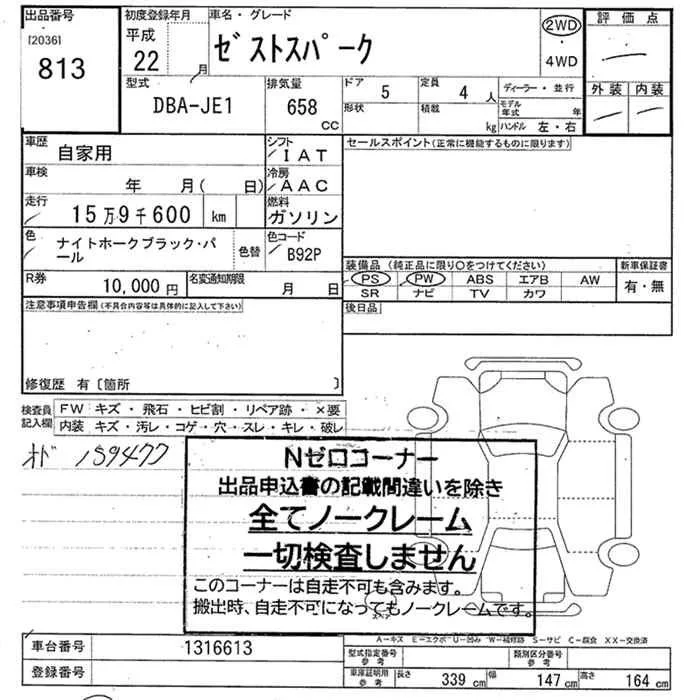 出品番号
[2036]
813
初度登録年月
平成
22
月
車名・グレード
ゼストスパーク
2WD
・
4WD
評価点
外装 内装
型式
DBA-JE1
排気量
658
CC
ドア
5
形状
定員
4
人
積載
kg
ディーラー・並行
モデル年式
年
ハンドル 左・右
車歴
自家用
シフト
IAT
車検
年 月( 日)
冷房
AAC
走行
15万9千600 km
燃料
ガソリン
色
ナイトホークブラック・パール
色替
色コード
B92P
R券
10,000 円
名変通知期限
月 日
セールスポイント(正常に機能するものに限ります)
装備品 (純正品に限り○をつけてください)
PS PW ABS エアB AW
SR ナビ TV カワ
新車保証書
有・無
後日品
注意事項申告欄(不具合内容等は具体的に記入して下さい)
修復歴 有〔箇所 〕
検査員記入欄
FW キズ・飛石・ヒビ割・リペア跡・×要
内装 キズ・汚レ・コゲ・穴・スレ・キレ・破レ
オド 159477
Nゼロコーナー
出品申込書の記載間違いを除き
全てノークレーム
一切検査しません
このコーナーは自走不可も含みます。
搬出時、自走不可になってもノークレームです。
A-キズ E-エクボ U-凹み W-補修跡 S-サビ C-腐食 XX-交換済
車台番号
1316613
登録番号
型式指定番号
参考
類別区分番号
参考
車庫証明用
参考
長さ
339 cm
幅
147 cm
高さ
164 cm